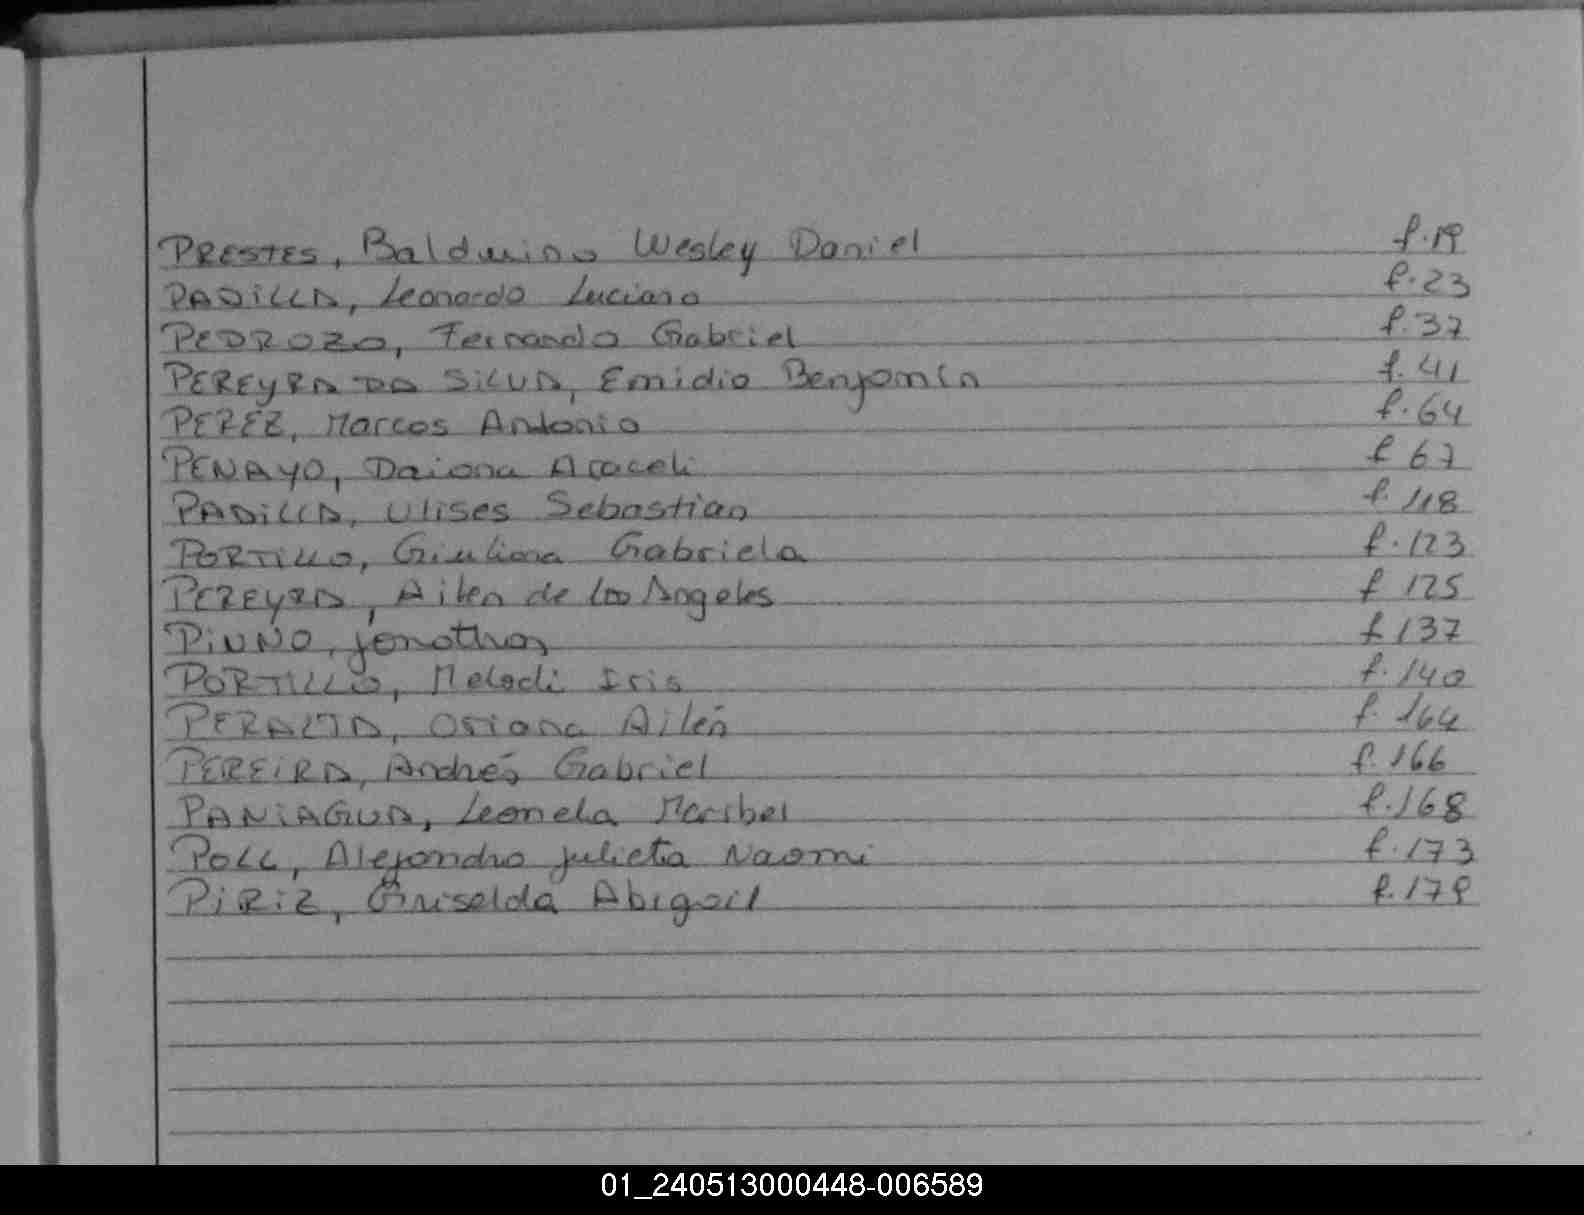 PRESTES, Balduino Wesley Daniel f.19
PADILLA, Leonardo Luciano f.23
PEDROZO, Fernando Gabriel f.37
PEREYRA DA SILVA, Emidio Benjamín f.41
PEREZ, Marcos Antonio f.64
PENAYO, Daiana Araceli f 67
PADILLA, Ulises Sebastian f.118
PORTILLO, Giuliana Gabriela f.123
PEREYRA, Ailen de los Angeles f 125
PINNO, Jonathan f 137
PORTILLO, Melodi Iris f.140
PERALTA, Oriana Ailén f.164
PEREIRA, Andrés Gabriel f.166
PANIAGUA, Leonela Maribel f.168
POLL, Alejandro Julieta Naomi f.173
PIRIZ, Griselda Abigail f.179
01_240513000448-006589